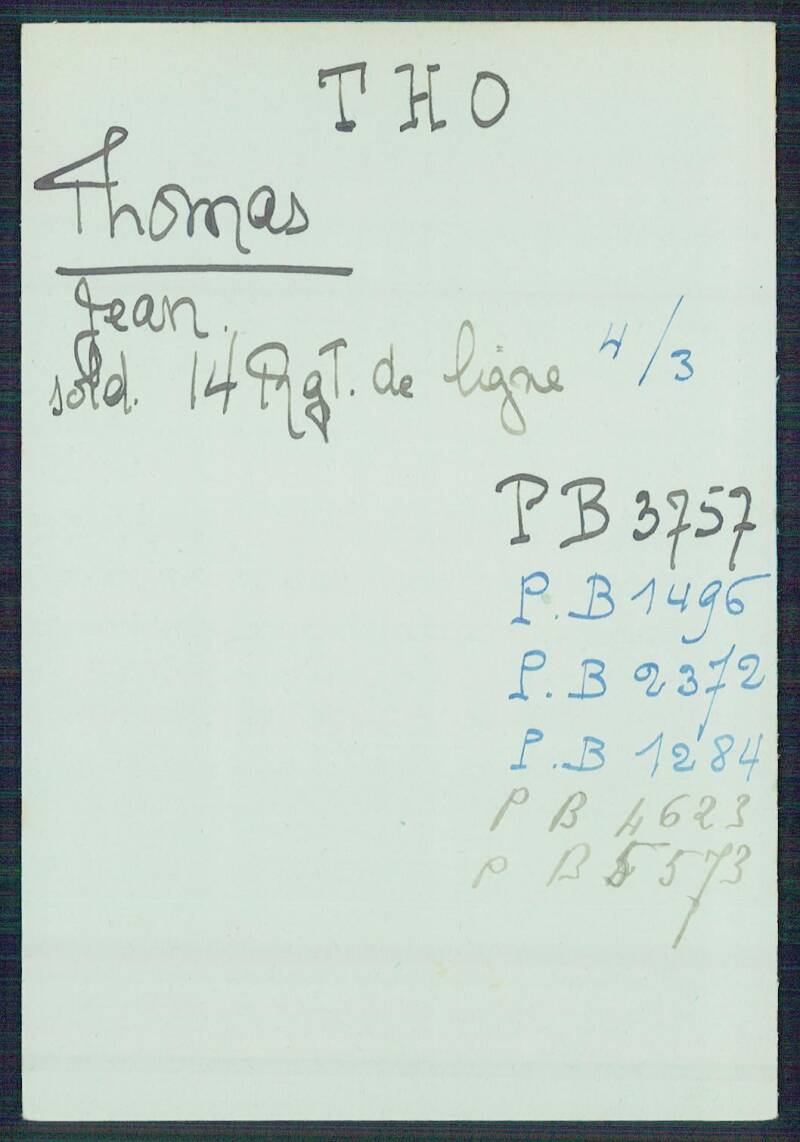 THO
Thomas
Jean.
sold. 14 Rgt. de ligne 4/3
PB 3757
P.B 1496
P.B 2372
P.B 1284
P B 4623
P B 5573